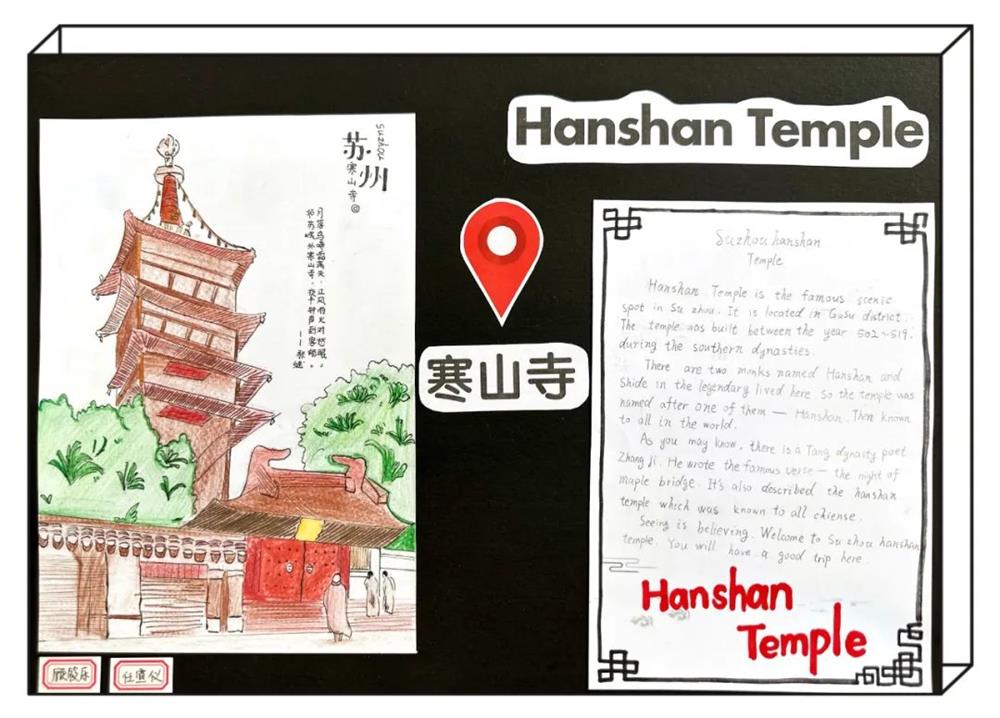 Suzhou
苏州
寒山寺
月落乌啼霜满天,江枫渔火对愁眠。
姑苏城外寒山寺,夜半钟声到客船。
——张继
Hanshan Temple
寒山寺
Suzhou hanshan
Temple
Hanshan Temple is the famous scenic
spot in Su zhou. It is located in Gusu district.
The temple was built between the year 502~519.
during the southern dynasties.
There are two monks named Hanshan and
Shide in the legendary lived here. So the temple was
named after one of them — Hanshan. Then known
to all in the world.
As you may know, there is a Tang dynasty poet
Zhang Ji. He wrote the famous verse — the night of
maple bridge. It's also described the hanshan
temple which was known to all chiense.
Seeing is believing. Welcome to Su zhou hanshan
temple. You will have a good trip here.
Hanshan
Temple
任宣仪